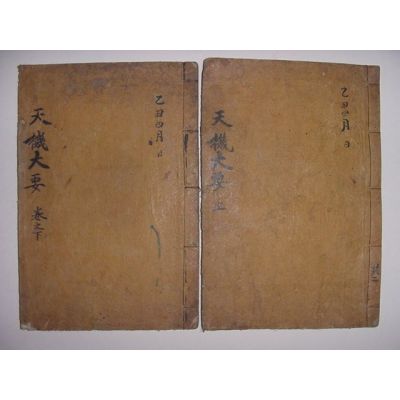 乙丑四月 日
天機大要 上
乙丑四月 日
天機大要 卷之下